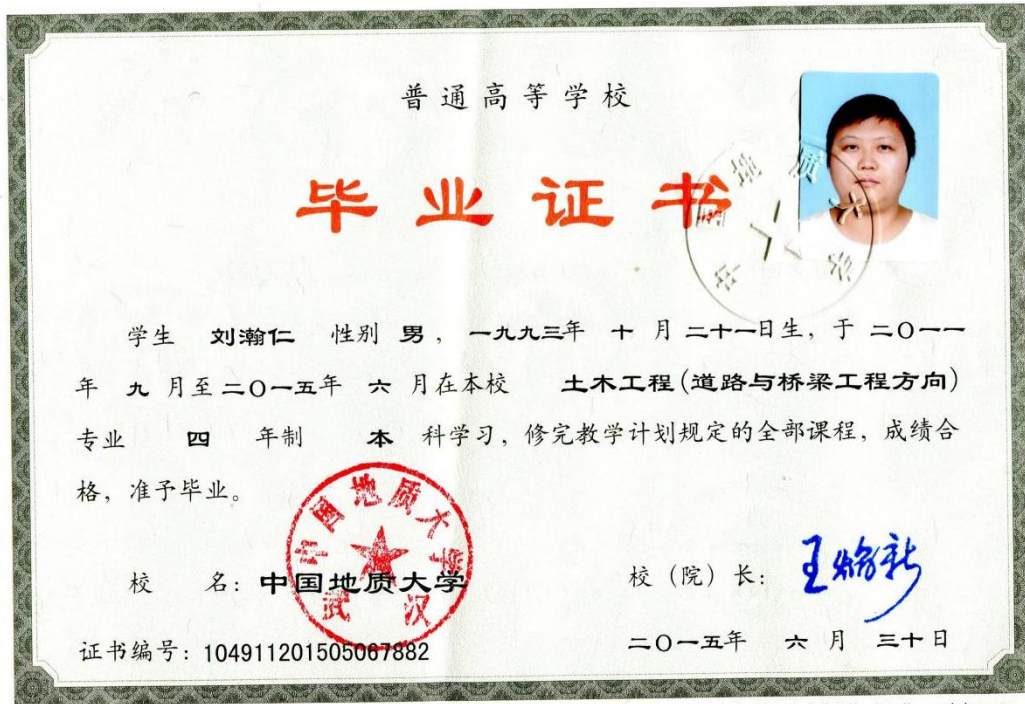 普通高等学校
毕业证书
学生 刘瀚仁 性别 男，一九九三年 十 月 二十一日生，于 二〇一一
年 九 月至 二〇一五年 六 月在本校 土木工程(道路与桥梁工程方向)
专业 四 年制 本 科学习，修完教学计划规定的全部课程，成绩合
格，准予毕业。
中国地质大学
武汉
校 名：中国地质大学
校（院）长：
王焰新
二〇一五年 六 月 三十日
证书编号：104911201505067882